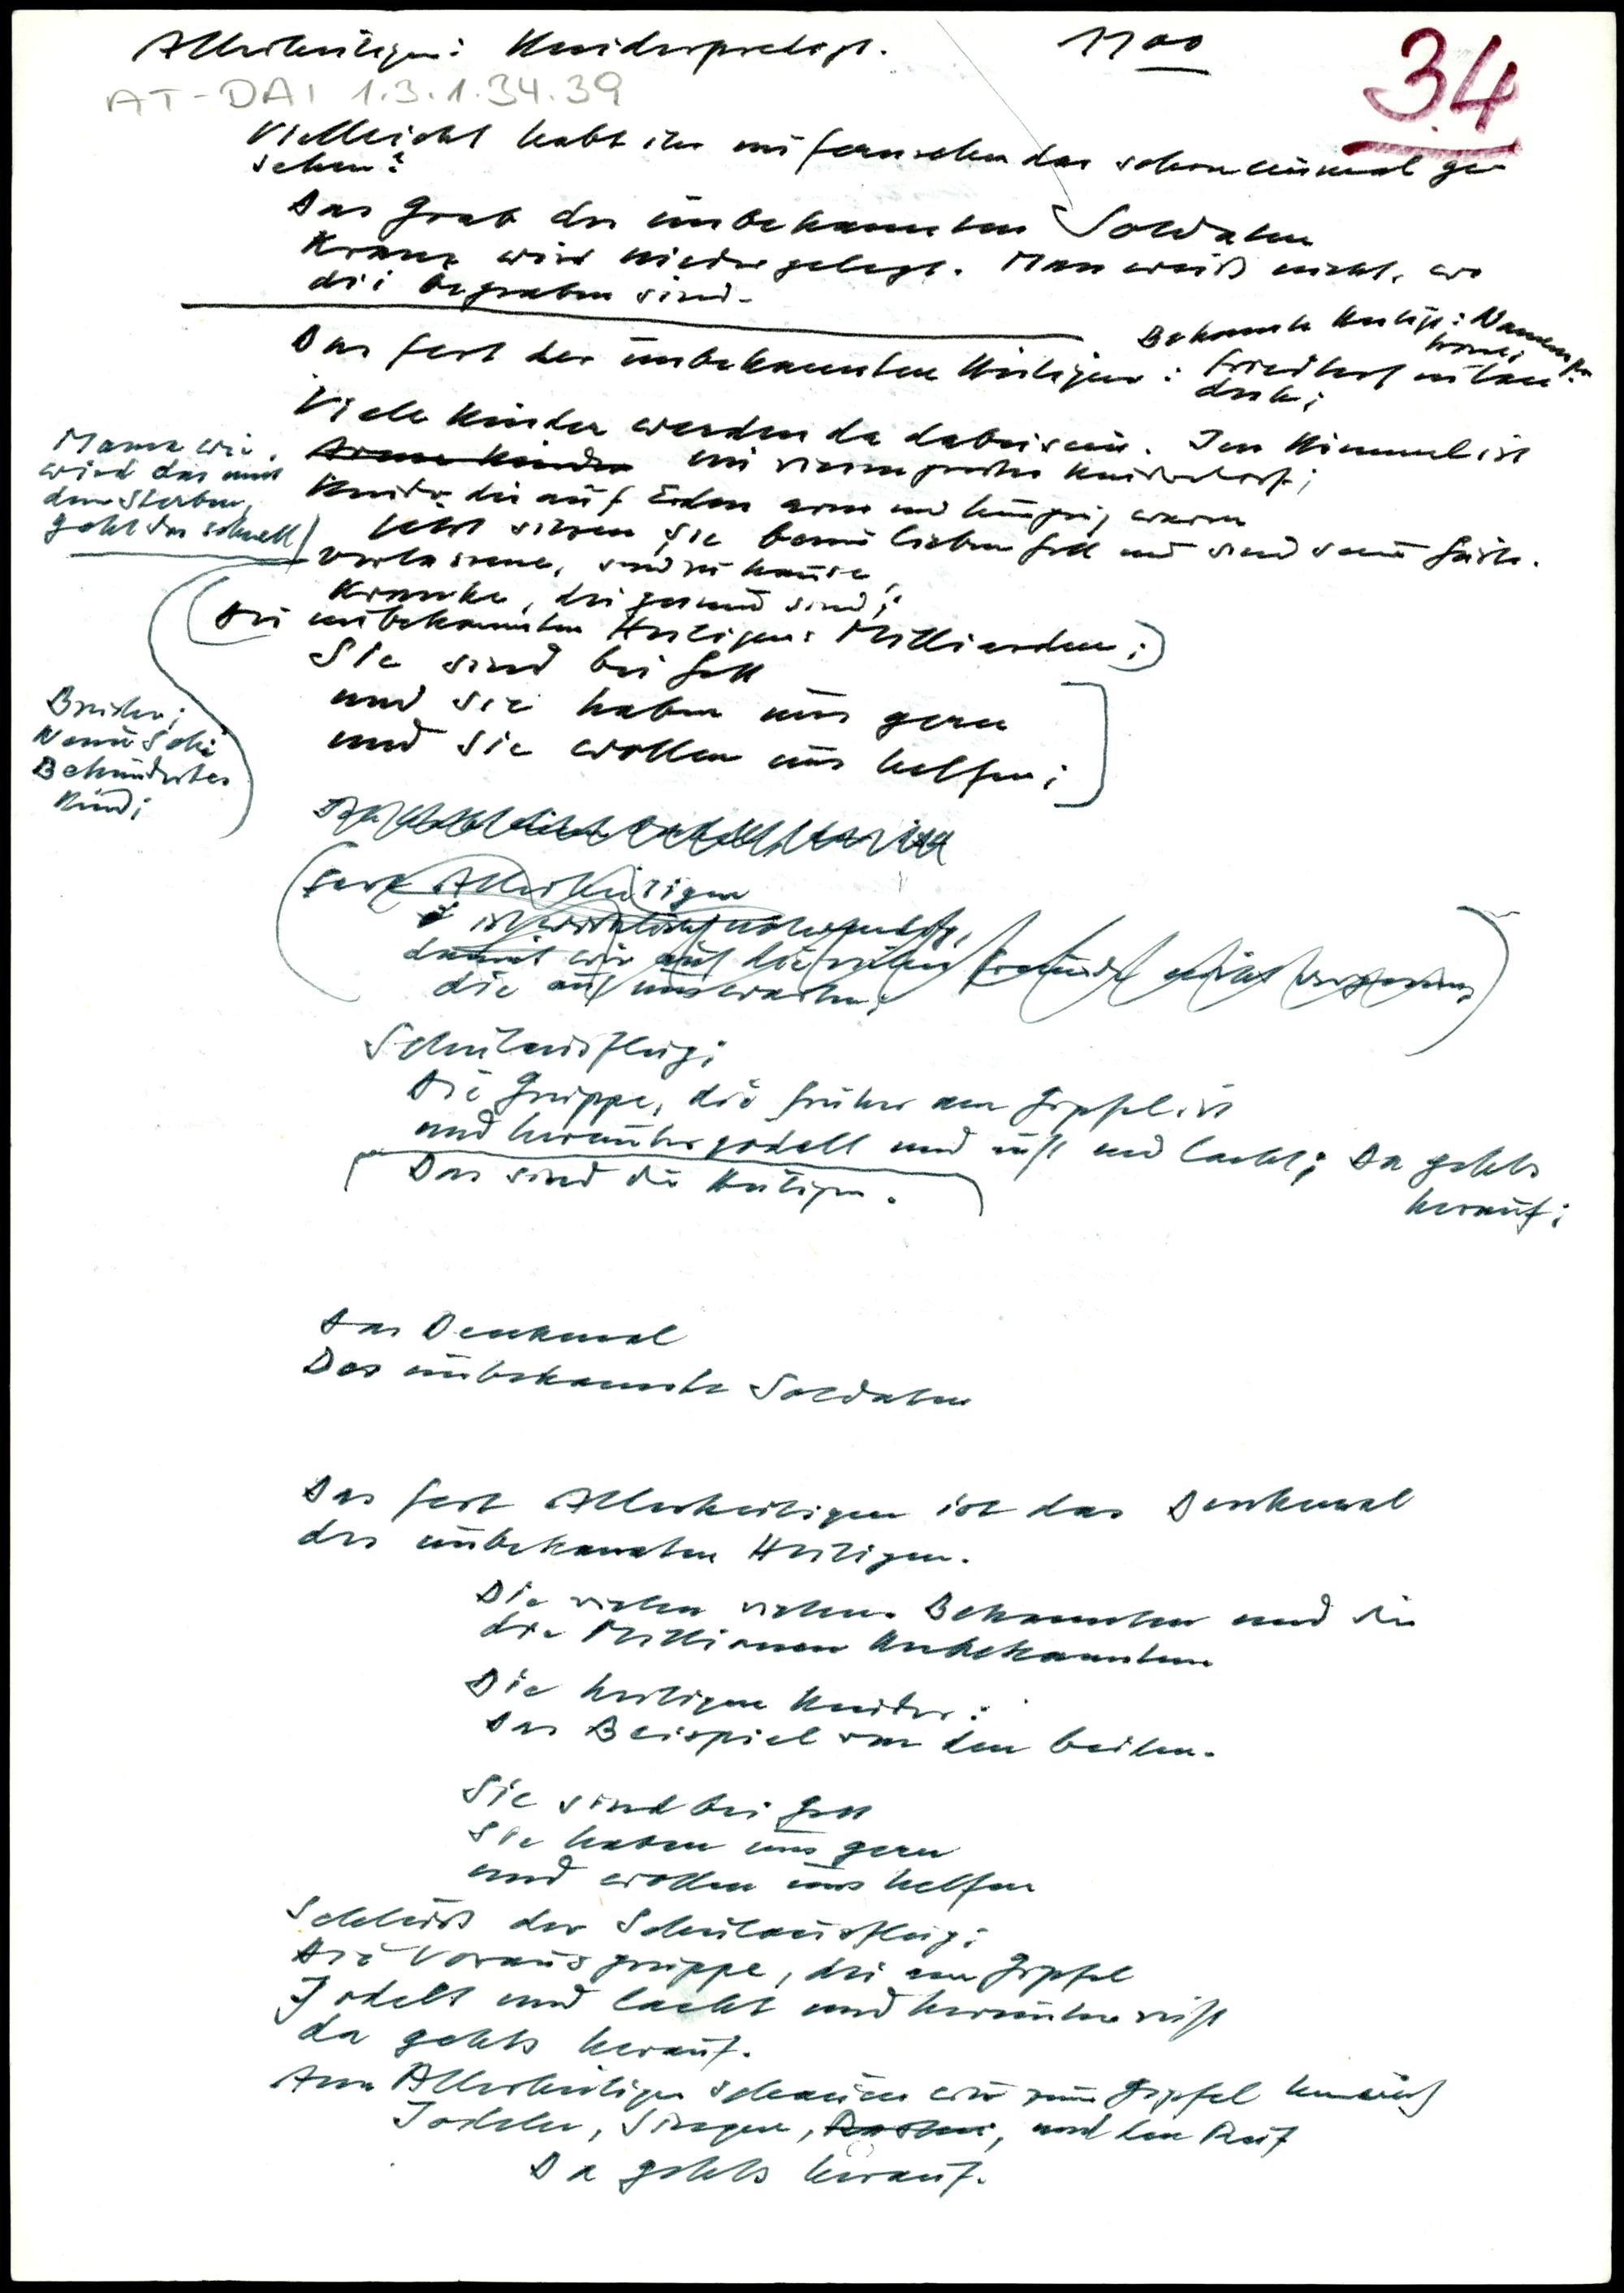 Allerheiligen: Kinderpredigt. 11 00
34
AT-DAI 1.3.1.34.39
Vielleicht habt ihr im Fernsehen das schon einmal ge-
sehen?
Das Grab des unbekannten Soldaten
Kranz wird niedergelegt. Man weiß nicht, wo
die begraben sind.
Bekannte Heilige: Namen
Das Fest der unbekannten Heiligen: Friedhof
Viele Kinder werden da dabeisein. Im Himmel ist
Arme Kinder ein riesengrosses Kinderdorf;
Kinder die auf Erden arm und hungrig waren
jetzt sitzen sie beim lieben Gott und sind seine Gäste.
Mama wie
wird das mit
dem Sterben,
geht das schnell
Verlassene, sind zu hause;
Kranke, die gesund sind;
(Die unbekannten Heiligen: Milliarden;)
Sie sind bei Gott
und sie haben uns gern
und sie wollen uns helfen;
Bruder;
Behindertes
Kind;
Fest Allerheiligen
ist wirklich notwendig,
damit wir auf die vielen Freunde nicht vergessen,
die auf uns warten;
Schulausflug;
Die Gruppe, die früher am Gipfel ist
und herunterjodelt und ruft und lacht; Da gehts
herauf;
Das sind die Heiligen.
Das Denkmal
Des unbekannte Soldaten
Das Fest Allerheiligen ist das Denkmal
des unbekannten Heiligen.
Die vielen vielen Bekannten und die
die Millionen Unbekannten
Die heiligen Kinder:
Das Beispiel von den beiden.
Sie sind bei Gott
Sie haben uns gern
und wollen uns helfen
Schluss der Schulausflug;
Die Vorausgruppe, die am Gipfel
Jodelt und lacht und herunter ruft
da gehts herauf.
Am Allerheiligen schauen wir zum Gipfel hinauf
Jodeln, Singen, und den Ruf
Da gehts herauf.